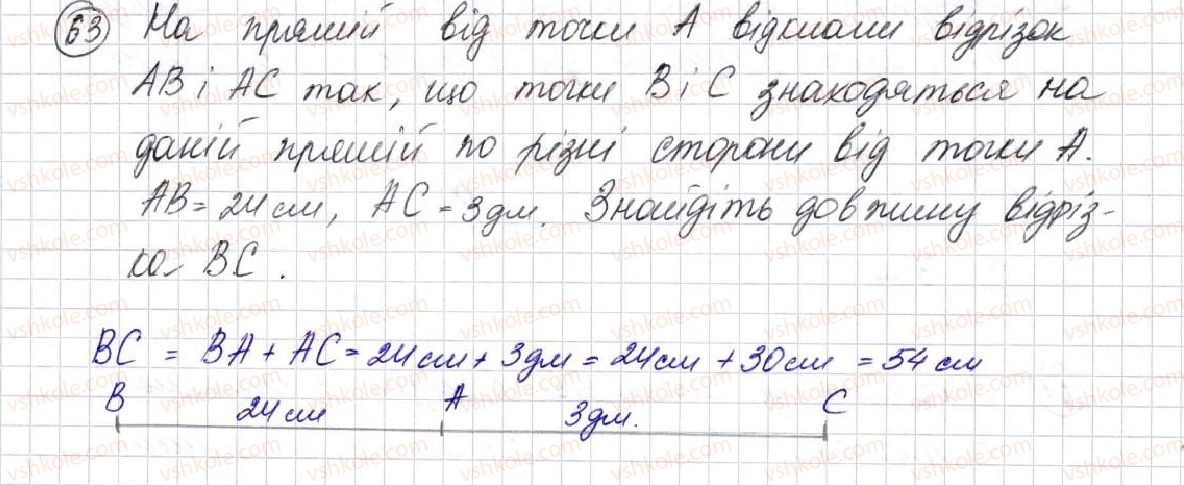 63 На прямій від точки А відклали відрізок
АВ і АС так, що точки В і С знаходяться на
даній прямій по різні сторони від точки А.
АВ = 24 см, АС = 3 дм. Знайдіть довжину відріз-
ка ВС.
ВС = ВА + АС = 24 см + 3 дм = 24 см + 30 см = 54 см
В 24 см А 3 дм. С